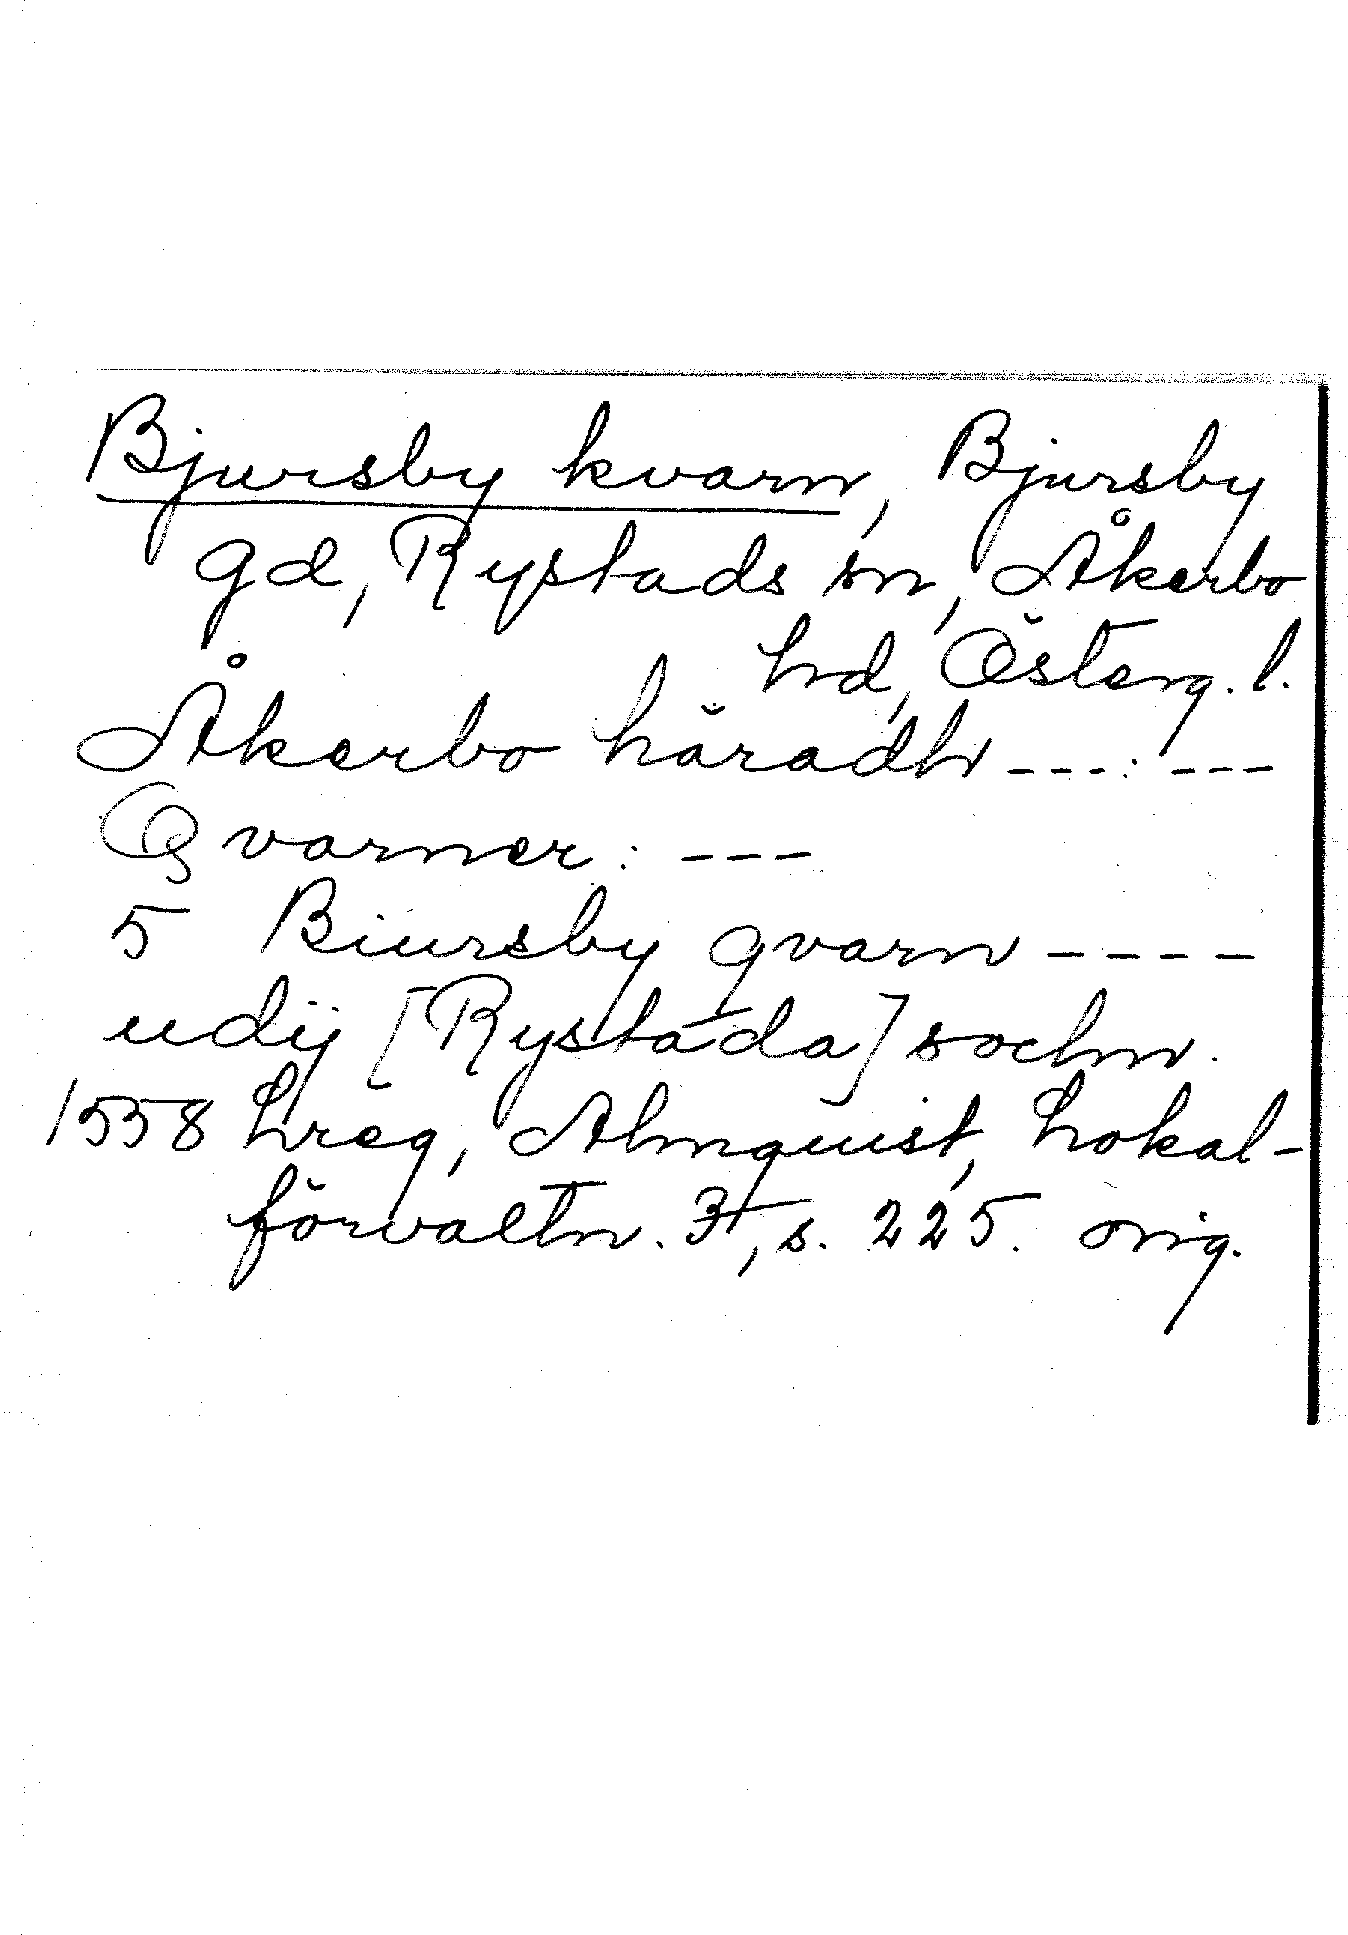 Bjursby kvarn, Bjursby
gd, Rystads sn, Åkerbo
hd, Österg. l.
Åkerbo häradh ---:---
Qvarner: ---
5 Biursby qvarn ----
udij [Rystada] sochn.
1558 Lreg, Almquist, Lokal-
förvaltn. 3, s. 225. orig.